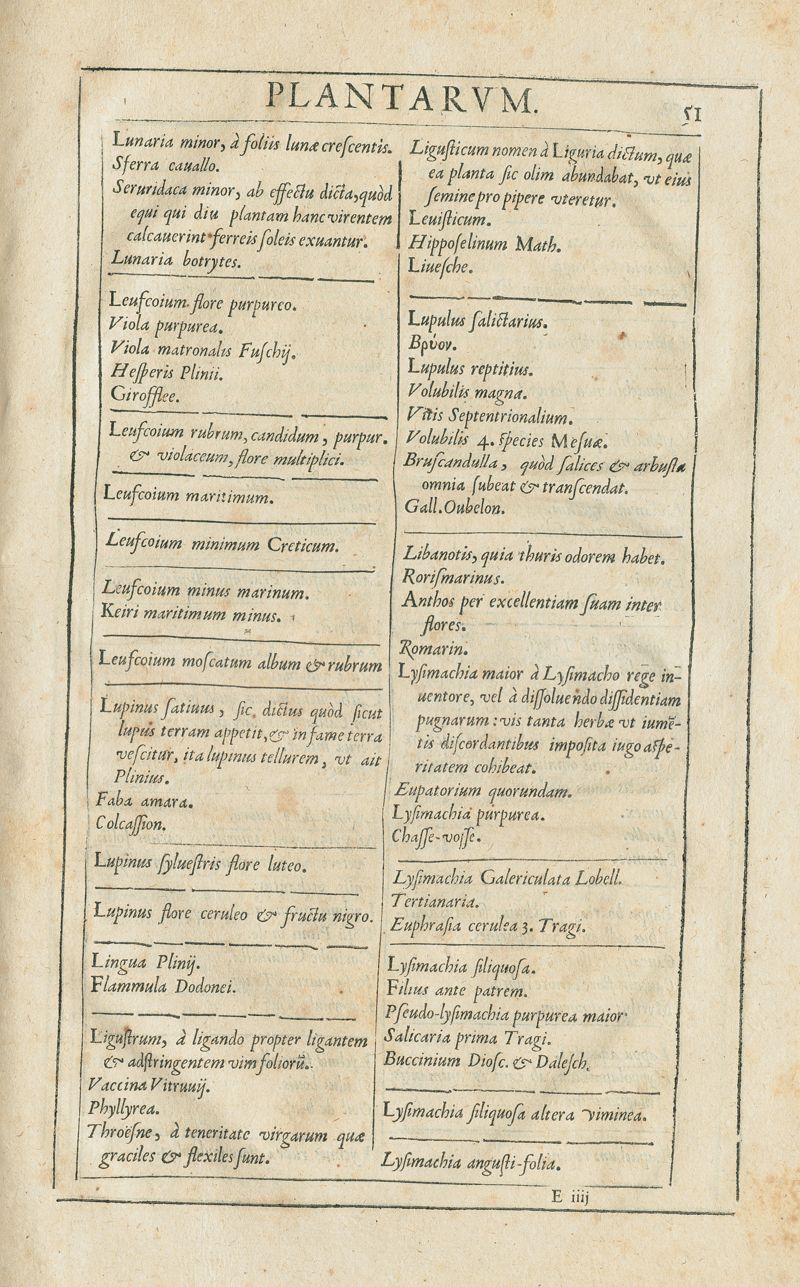 PLANTARVM.
51
Lunaria minor, à foliis lunæ crescentis.
Sferra cauallo.
Seruridaca minor, ab effectu dicta, quòd
equi qui diu plantam hanc virentem
calcauerint ferreis soleis exuantur.
Lunaria botrytes.
Leuſcoium flore purpureo.
Viola purpurea.
Viola matronalis Fuſchij.
Heſperis Plinii.
Girofflee.
Leuſcoium rubrum, candidum, purpur.
& violaceum, flore multiplici.
Leuſcoium maritimum.
Leuſcoium minimum Creticum.
Leuſcoium minus marinum.
Keiri maritimum minus.
Leuſcoium moſcatum album & rubrum
Lupinus ſatiuus, ſic dictus quòd ſicut
lupus terram appetit, & in fame terra
veſcitur, ita lupinus tellurem, vt ait
Plinius.
Faba amara.
Colcaſſion.
Lupinus ſylueſtris flore luteo.
Lupinus flore ceruleo & fructu nigro.
Lingua Plinij.
Flammula Dodonei.
Liguſtrum, à ligando propter ligantem
& adſtringentem vim foliorũ.
Vaccina Vitruuij.
Phyllyrea.
Throëſne, à teneritate virgarum quæ
graciles & flexiles ſunt.
Liguſticum nomen à Liguria dictum, quæ
ea planta ſic olim abundabat, vt eius
ſemine pro pipere vteretur.
Leuiſticum.
Hippoſelinum Math.
Liueſche.
Lupulus ſalictarius.
Βρύον.
Lupulus reptitius.
Volubilis magna.
Vitis Septentrionalium.
Volubilis 4. ſpecies Meſuæ.
Bruſcandulla, quòd ſalices & arbuſta
omnia ſubeat & tranſcendat.
Gall. Oubelon.
Libanotis, quia thuris odorem habet.
Roriſmarinus.
Anthos per excellentiam ſuam inter
flores.
Romarin.
Lyſimachia maior à Lyſimacho rege in-
uentore, vel à diſſoluendo diſſidentiam
pugnarum: vis tanta herbæ vt iumẽ-
tis diſcordantibus impoſita iugo aſpe-
ritatem cohibeat.
Eupatorium quorundam.
Lyſimachia purpurea.
Chaſſe-voſſe.
Lyſimachia Galericulata Lobell.
Tertianaria.
Euphraſia cerulea 3. Tragi.
Lyſimachia ſiliquoſa.
Filius ante patrem.
Pſeudo-lyſimachia purpurea maior
Salicaria prima Tragi.
Buccinium Dioſc. & Daleſch.
Lyſimachia ſiliquoſa altera Viminea.
Lyſimachia anguſti-folia.
E iiij